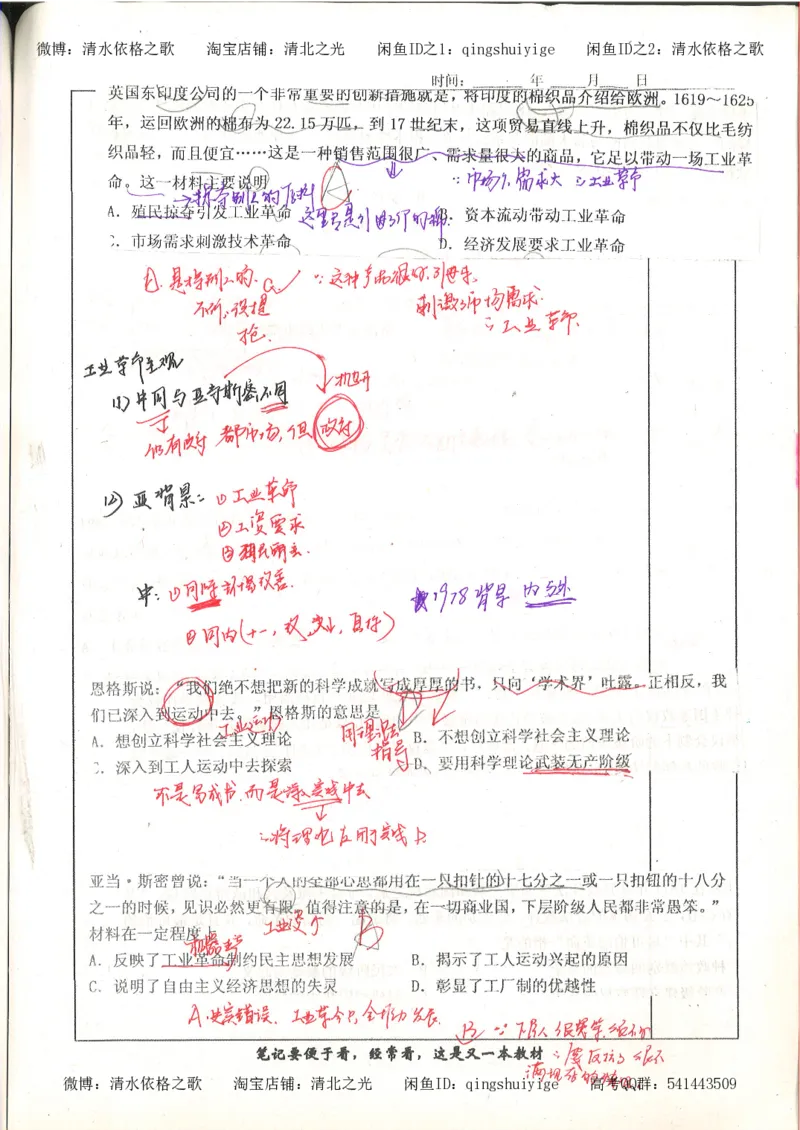 微博：清水依格之歌 淘宝店铺：清北之光 闲鱼ID之1：qingshuiyige 闲鱼ID之2：清水依格之歌
时间： 年 月 日
英国东印度公司的一个非常重要的创新措施就是，将印度的棉织品介绍给欧洲。1619～1625
年，运回欧洲的棉布为22.15万匹，到17世纪末，这项贸易直线上升，棉织品不仅比毛纺
织品轻，而且便宜……这是一种销售范围很广、需求量很大的商品，它足以带动一场工业革
命。这一材料主要说明
∵市场个需求大 ∴工业革命
A．殖民掠夺引发工业革命 B．资本流动带动工业革命
C．市场需求刺激技术革命 D．经济发展要求工业革命
∵这种产品很好，引进来，
不对，没提
刺激了市场需求．
抢．
∴工业革命．
工业革命主观
(1)中国与亚当斯密不同
仍有政府 都市场，但政府
(2)亚背景：①工业革命
②工资要求
中：①国际环境改善．
★1978背景 内与外
②国内(十一，
恩格斯说：“我们绝不想把新的科学成就写成厚厚的书，只向‘学术界’吐露。正相反，我
们已深入到运动中去。”恩格斯的意思是
工业运动
用理论
指导
A．想创立科学社会主义理论 B．不想创立科学社会主义理论
C．深入到工人运动中去探索 D．要用科学理论武装无产阶级
不是写成书，而是深入实践中去
∴将理论应用于实践上
亚当·斯密曾说：“当一个人的全部心思都用在一只扣针的十七分之一或一只扣钮的十八分
之一的时候，见识必然更有限。值得注意的是，在一切商业国，下层阶级人民都非常愚笨。”
材料在一定程度上
B
A．反映了工业革命制约民主思想发展 B．揭示了工人运动兴起的原因
C．说明了自由主义经济思想的失灵 D．彰显了工厂制的优越性
A．史实错误．工业革命只会推动发展．
笔记要便于看，经常看，这是又一本教材
微博：清水依格之歌 淘宝店铺：清北之光 闲鱼ID：qingshuiyige 高考QQ群：541443509